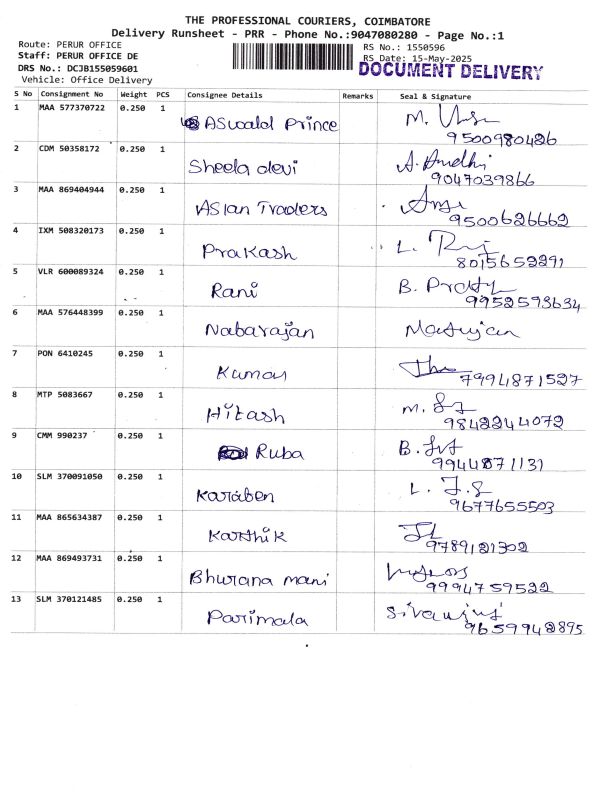 THE PROFESSIONAL COURIERS, COIMBATORE
Delivery Runsheet - PRR - Phone No.:9047080280 - Page No.:1
Route: PERUR OFFICE RS No.: 1550596
Staff: PERUR OFFICE DE RS Date: 15-May-2025
DRS No.: DCJB155059601 DOCUMENT DELIVERY
Vehicle: Office Delivery
S No Consignment No Weight PCS Consignee Details Remarks Seal & Signature
1 MAA 577370722 0.250 1 Aswald Prince M.
9500980426
2 CDM 50358172 0.250 1 Sheela devi A.
9047039866
3 MAA 869404944 0.250 1 Asian Traders
9500626662
4 IXM 508320173 0.250 1 Prakash L.
8015652291
5 VLR 600089324 0.250 1 Rani B.
9952593634
6 MAA 576448399 0.250 1 Nabarajan
7 PON 6410245 0.250 1 Kumar
7994871527
8 MTP 5083667 0.250 1 Hitash M.
9842244072
9 CMM 990237 0.250 1 Ruba B.
9944871131
10 SLM 370091050 0.250 1 Karaben L.
9677655503
11 MAA 865634387 0.250 1 Karthik
9789121302
12 MAA 869493731 0.250 1 Bhuvana mani
9994759522
13 SLM 370121485 0.250 1 Parimala
9659942895